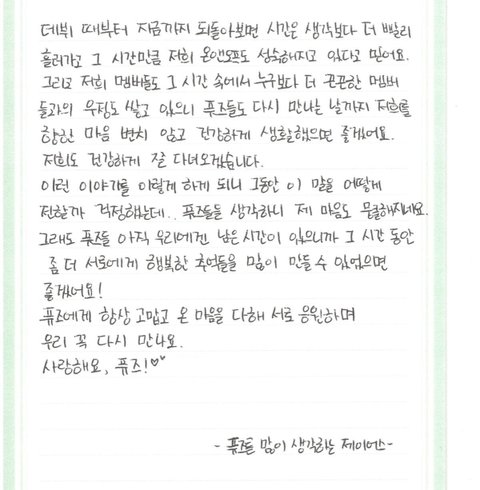 데뷔 때부터 지금까지 되돌아보면 시간은 생각보다 더 빨리
흘러가고 그 시간만큼 저희 온앤오프도 성숙해지고 있다고 믿어요.
그리고 저희 멤버들도 그 시간 속에서 누구보다 더 끈끈한 멤버
들과의 우정도 쌓고 있으니 퓨즈들도 다시 만나는 날까지 저희를
향한 마음 변치 않고 건강하게 생활했으면 좋겠어요.
저희도 건강하게 잘 다녀오겠습니다.
이런 이야기를 이렇게 하게 되니 그동안 이 말을 어떻게
전할까 걱정했는데.. 퓨즈들을 생각하니 제 마음도 뭉클해지네요.
그래도 퓨즈들 아직 우리에겐 남은 시간이 있으니까 그 시간 동안
좀 더 서로에게 행복한 추억들을 많이 만들 수 있었으면
좋겠어요!
퓨즈에게 항상 고맙고 온 마음을 다해 서로 응원하며
우리 꼭 다시 만나요.
사랑해요, 퓨즈!♡♥
- 퓨즈를 많이 생각하는 제이어스-